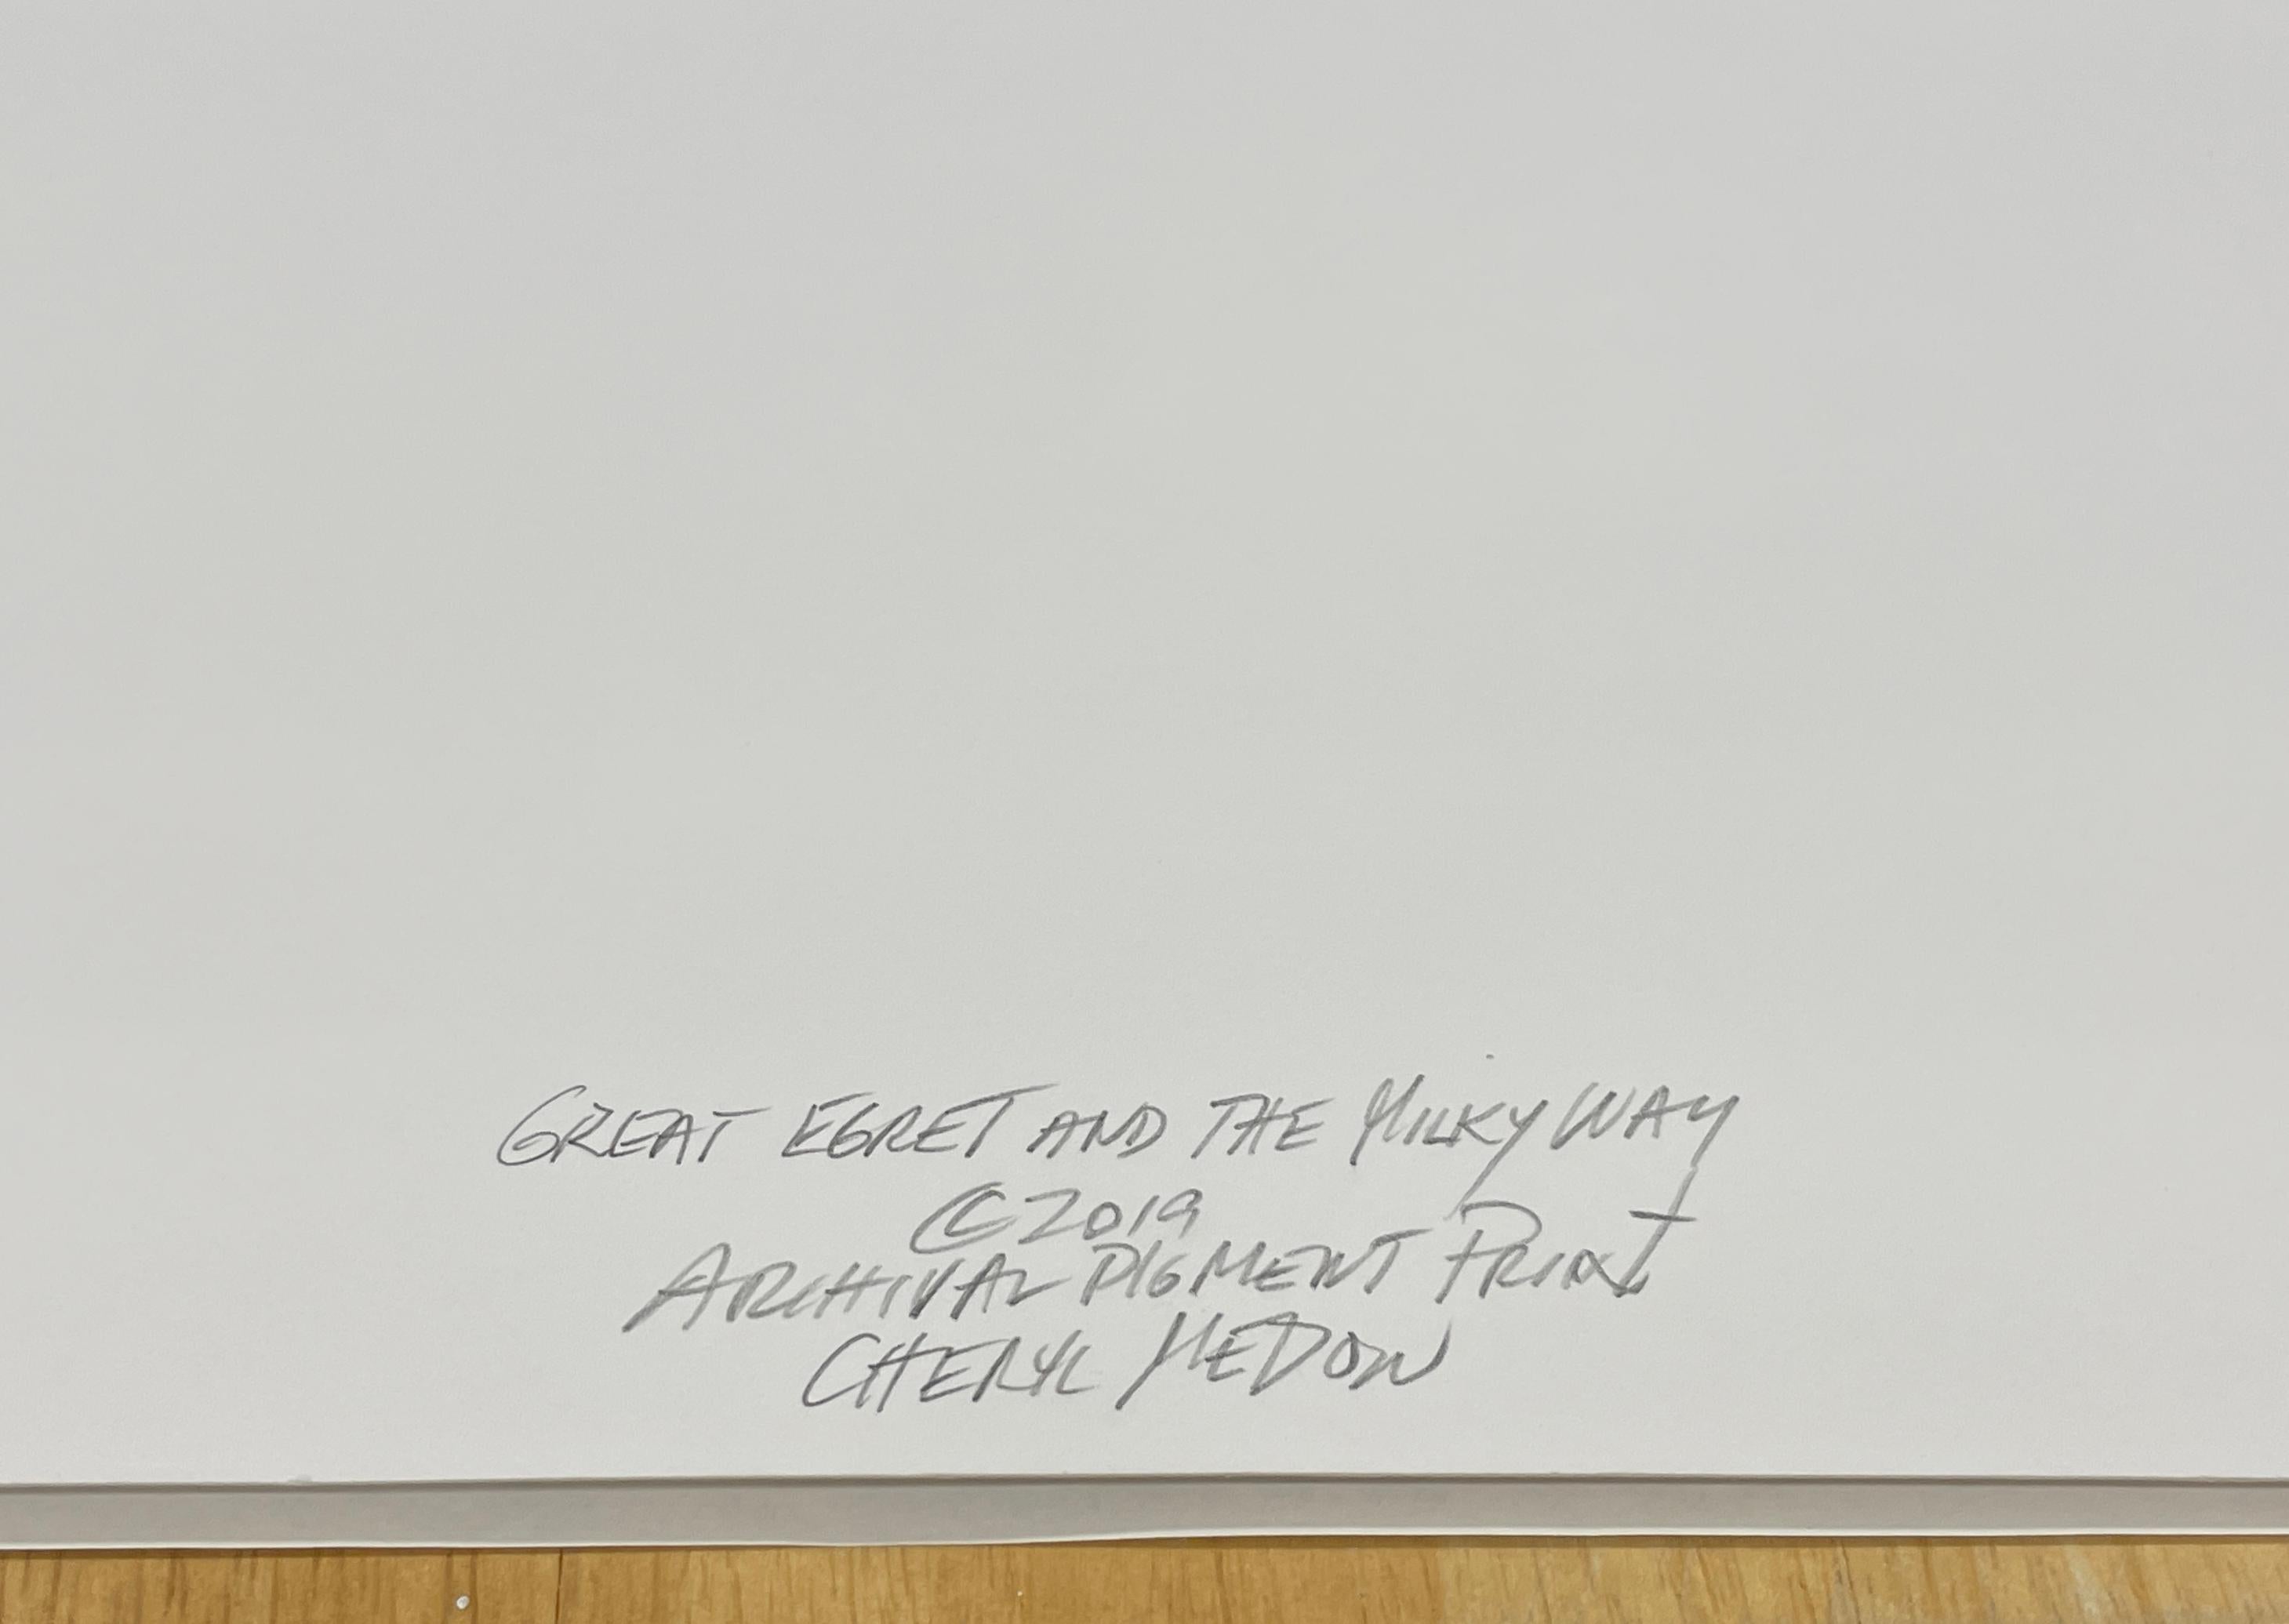 GREAT EGRET AND THE MILKY WAY
© 2019
ARCHIVAL PIGMENT PRINT
CHERYL MEDOW